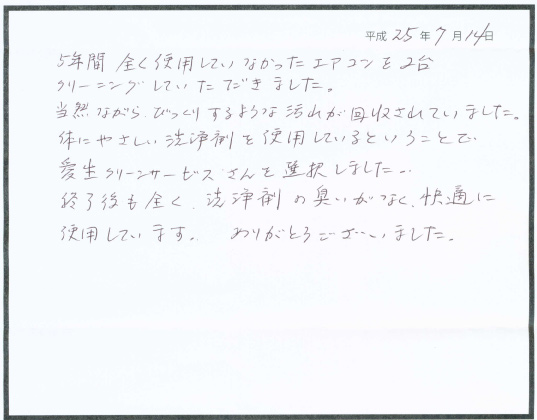 平成25年7月14日
5年間 全く使用していなかったエアコンを2台
クリーニングしていただきました。
当然ながら、びっくりするような汚れが回収されていました。
体にやさしい洗浄剤を使用しているということで
愛生クリーンサービスさんを選択しました。
終了後も全く、洗浄剤の臭いがなく、快適に
使用しています。 ありがとうございました。